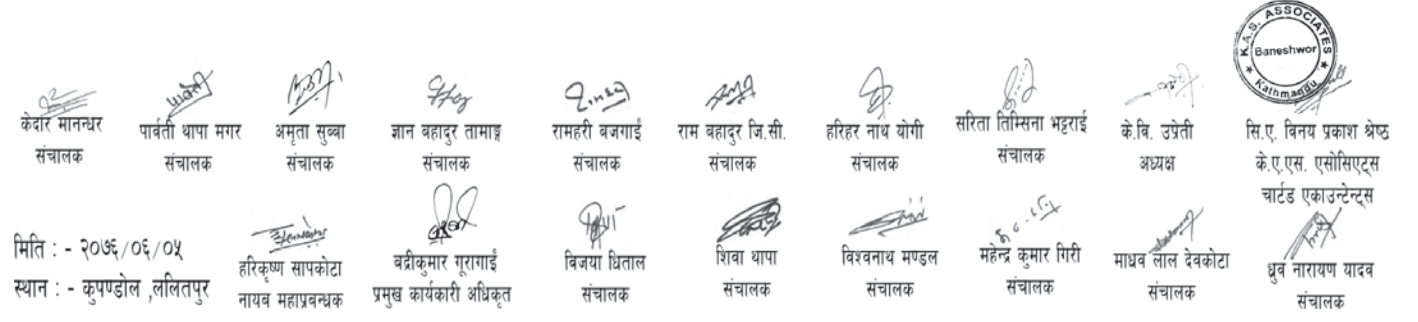 K.A.S. ASSOCIATES
Baneshwor
Kathmandu
केदार मानन्धर
संचालक
पार्वती थापा मगर
संचालक
अमृता सुब्बा
संचालक
ज्ञान बहादुर तामाङ्ग
संचालक
रामहरी बजगाईं
संचालक
राम बहादुर जि.सी.
संचालक
हरिहर नाथ योगी
संचालक
सरिता तिम्सिना भट्टराई
संचालक
के.वि. उप्रेती
अध्यक्ष
सि.ए. विनय प्रकाश श्रेष्ठ
के.ए.एस. एसोसिएट्स
चार्टड एकाउन्टेन्ट्स
मिति : - २०७६/०६/०५
स्थान : - कुपण्डोल ,ललितपुर
हरिकृष्ण सापकोटा
नायब महाप्रबन्धक
बद्रीकुमार गूरागाईं
प्रमुख कार्यकारी अधिकृत
विजया धिताल
संचालक
शिवा थापा
संचालक
विश्वनाथ मण्डल
संचालक
महेन्द्र कुमार गिरी
संचालक
माधव लाल देवकोटा
संचालक
ध्रुव नारायण यादव
संचालक